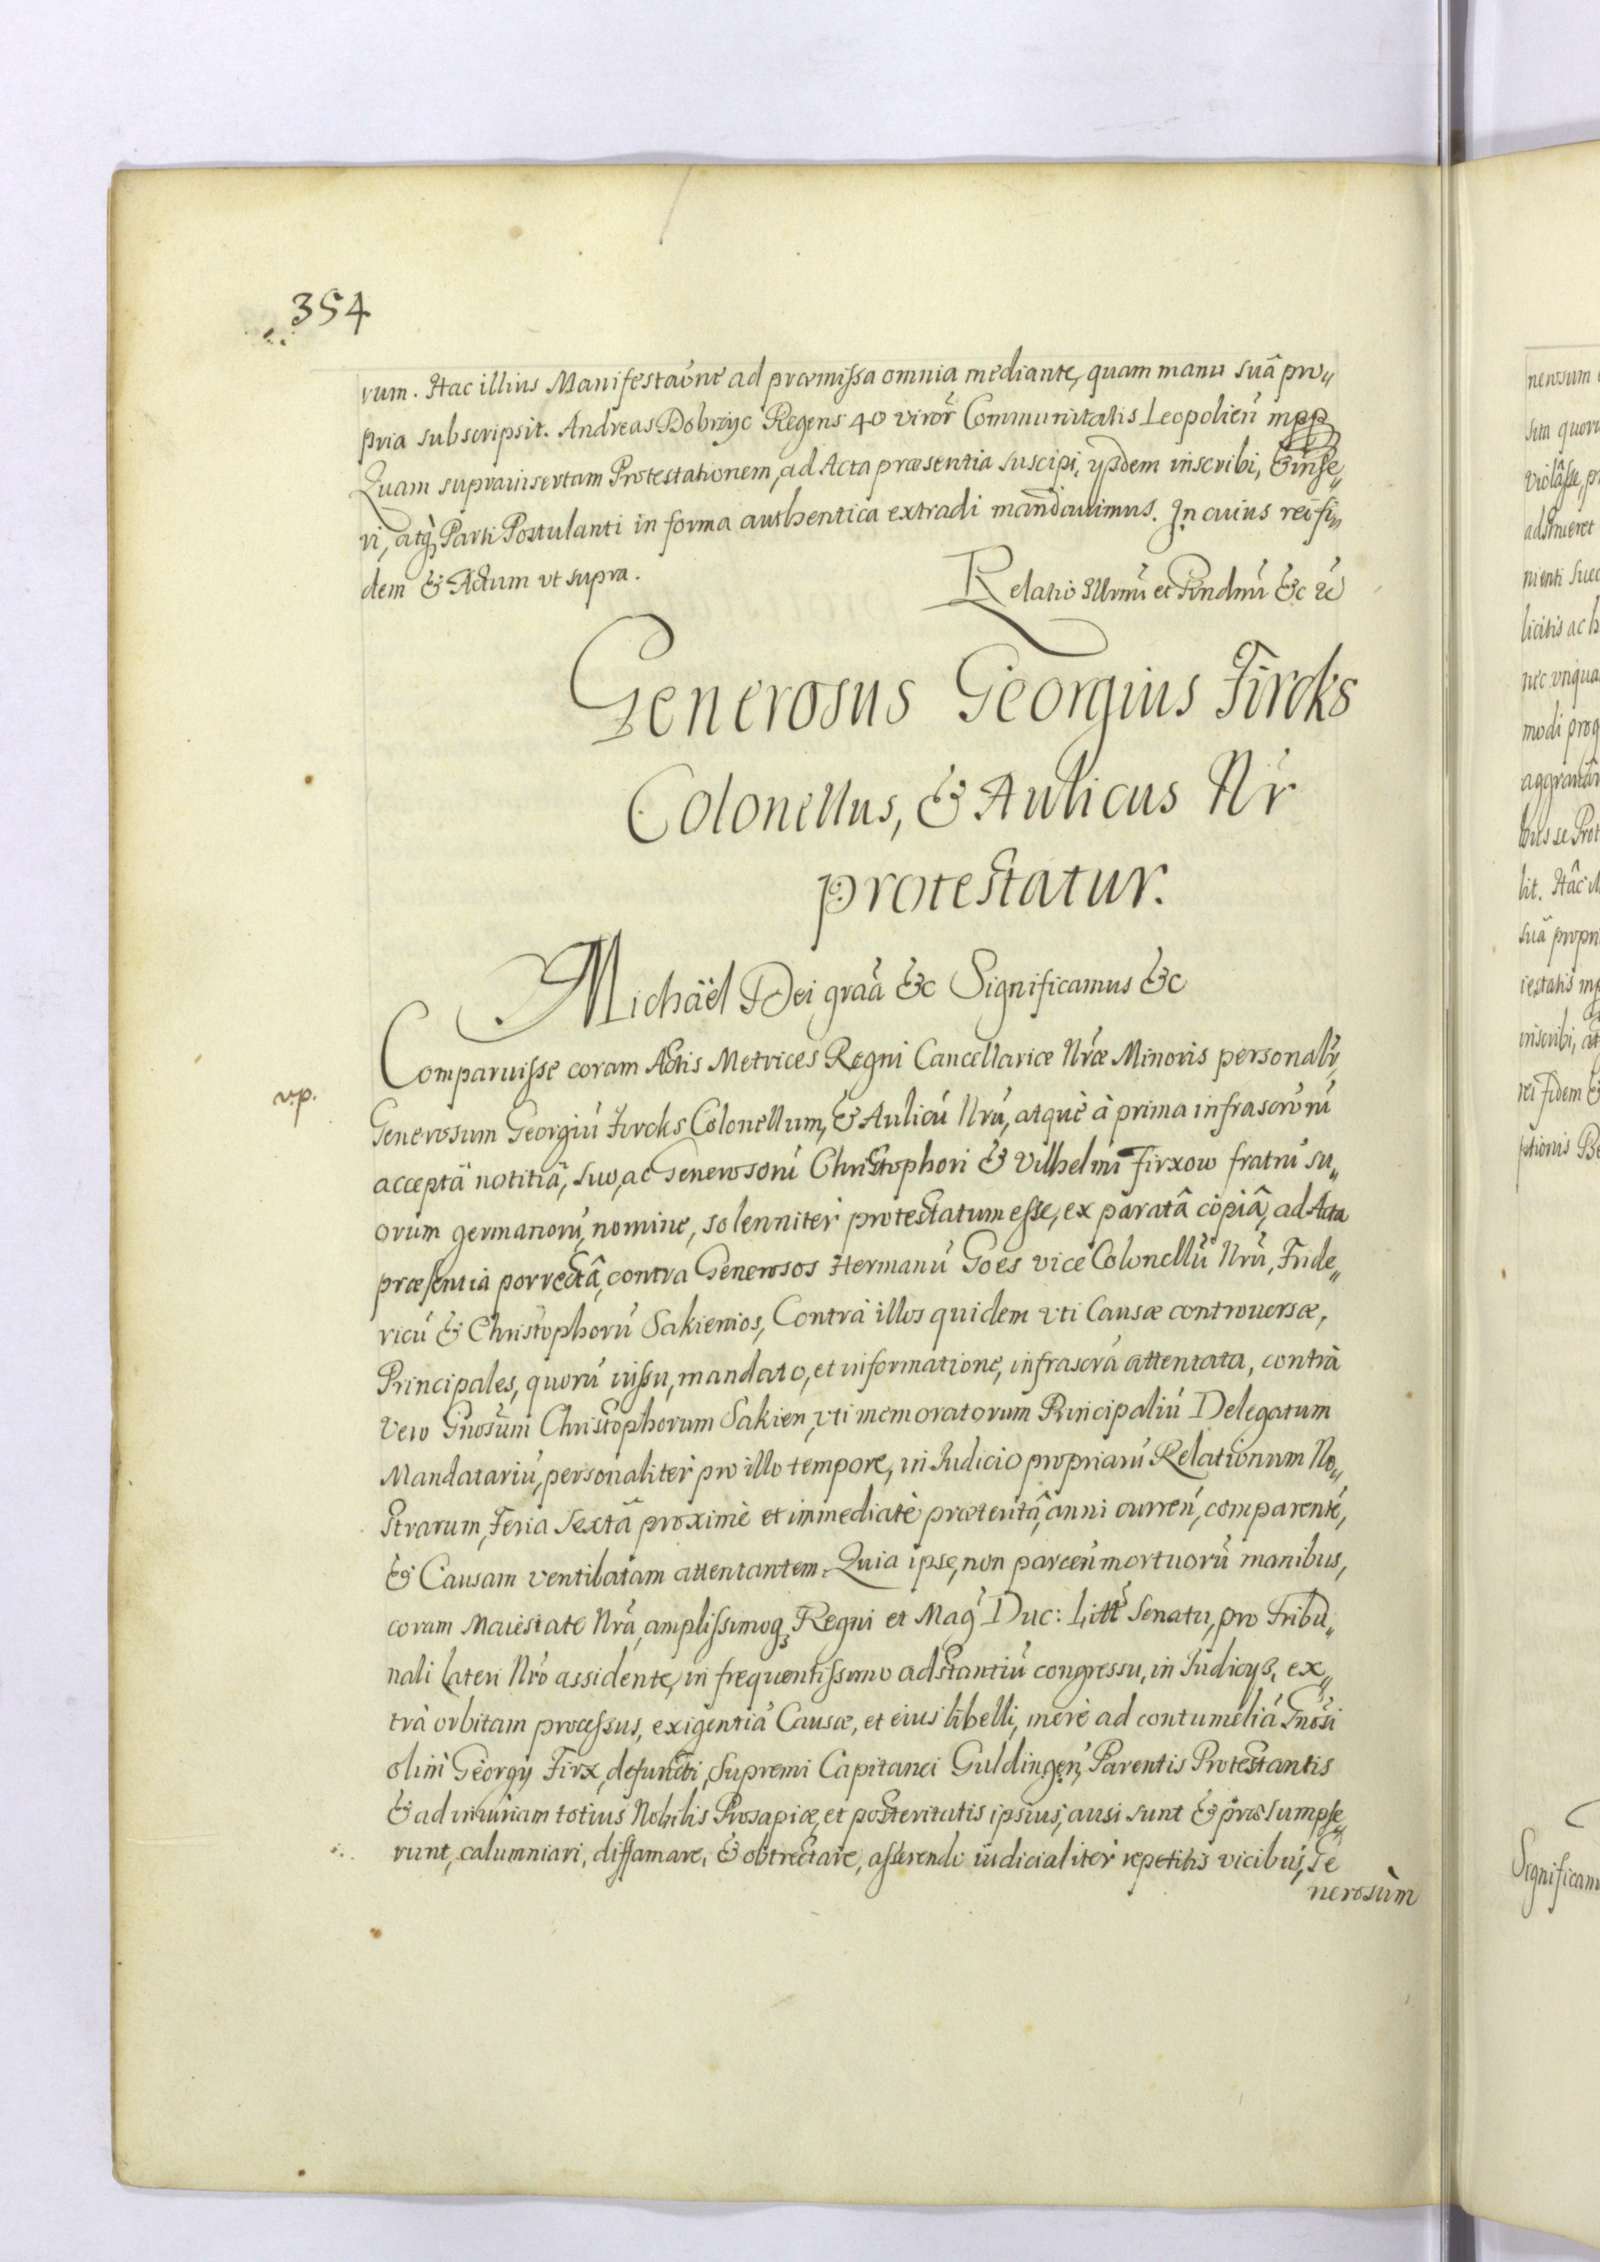 354
rum. Hac illius Manifestaone ad præmissa omnia mediante, quam manu suâ pro„
pria subscripsit. Andreas Dobrzyc Regens 40 viror Communitatis Leopolien mpp
Quam suprainsertam Protestationem, ad Acta præsentia suscipi, ysdem inscribi, & inse„
ri, atq Parti Postulanti in forma authentica extradi mandauimus. In cuius rei fi„
dem & Actum vt supra.
Relatio Illrmi et Rndmi &c &c
Generosus Georgius Fircks
Colonellus, & Aulicus Nr
protestatur.
Michaël Dei graâ &c Significamus &c
Comparuisse coram Actis Metrices Regni Cancellariæ Nræ Minoris personalr,
v.p.
Generosum Georgiu Fircks Colonellum, & Aulicu Nrũ, atquè à prima infrascroru
acceptâ notitiâ, suo, ac Generosoru Christophori & Vilhelmi Firxow fratru su„
orum germanoru, nomine, solenniter protestatum esse, ex paratâ copiâ, ad Acta
præsentia porrectâ, contra Generosos Hermanu Goes vice Colonellũ Nrũ, Fride„
ricu & Christophoru Sakienios, Contrà illos quidem vti Causæ controuersæ,
Principales, quoru iussu, mandato, et informatione, infrascra attentata, contrà
vero Gnosum Christophorum Sakien, vti memoratorum Principaliu Delegatum
Mandatariu, personaliter pro illo tempore, in Iudicio propriaru Relationum No„
strarum, Feria Sextâ proximè et immediatè præteritâ, anni curren, comparente,
& Causam ventilatam attentantem. Quia ipse, non parcen mortuoru manibus,
coram Maiestate Nrâ, amplissimoq Regni et Mag Duc: Litt Senatu, pro Tribu„
nali lateri Nro assidente, in frequentissimo adstantiu congressu, in Iudicys, ex„
trà orbitam processus, exigentia Causæ, et eius libelli, merè ad contumelia Gnosi
olim Georgy Firx, defuncti, Supremi Capitanei Guldingen, Parentis Protestantis
& ad iniuriam totius Nobilis Prosapiæ, et posteritatis ipsius, ausi sunt & præsumpse„
runt, calumniari, diffamare, & obtrectare, asserendo iudicialiter repetitis vicibus, Ge
nerosum